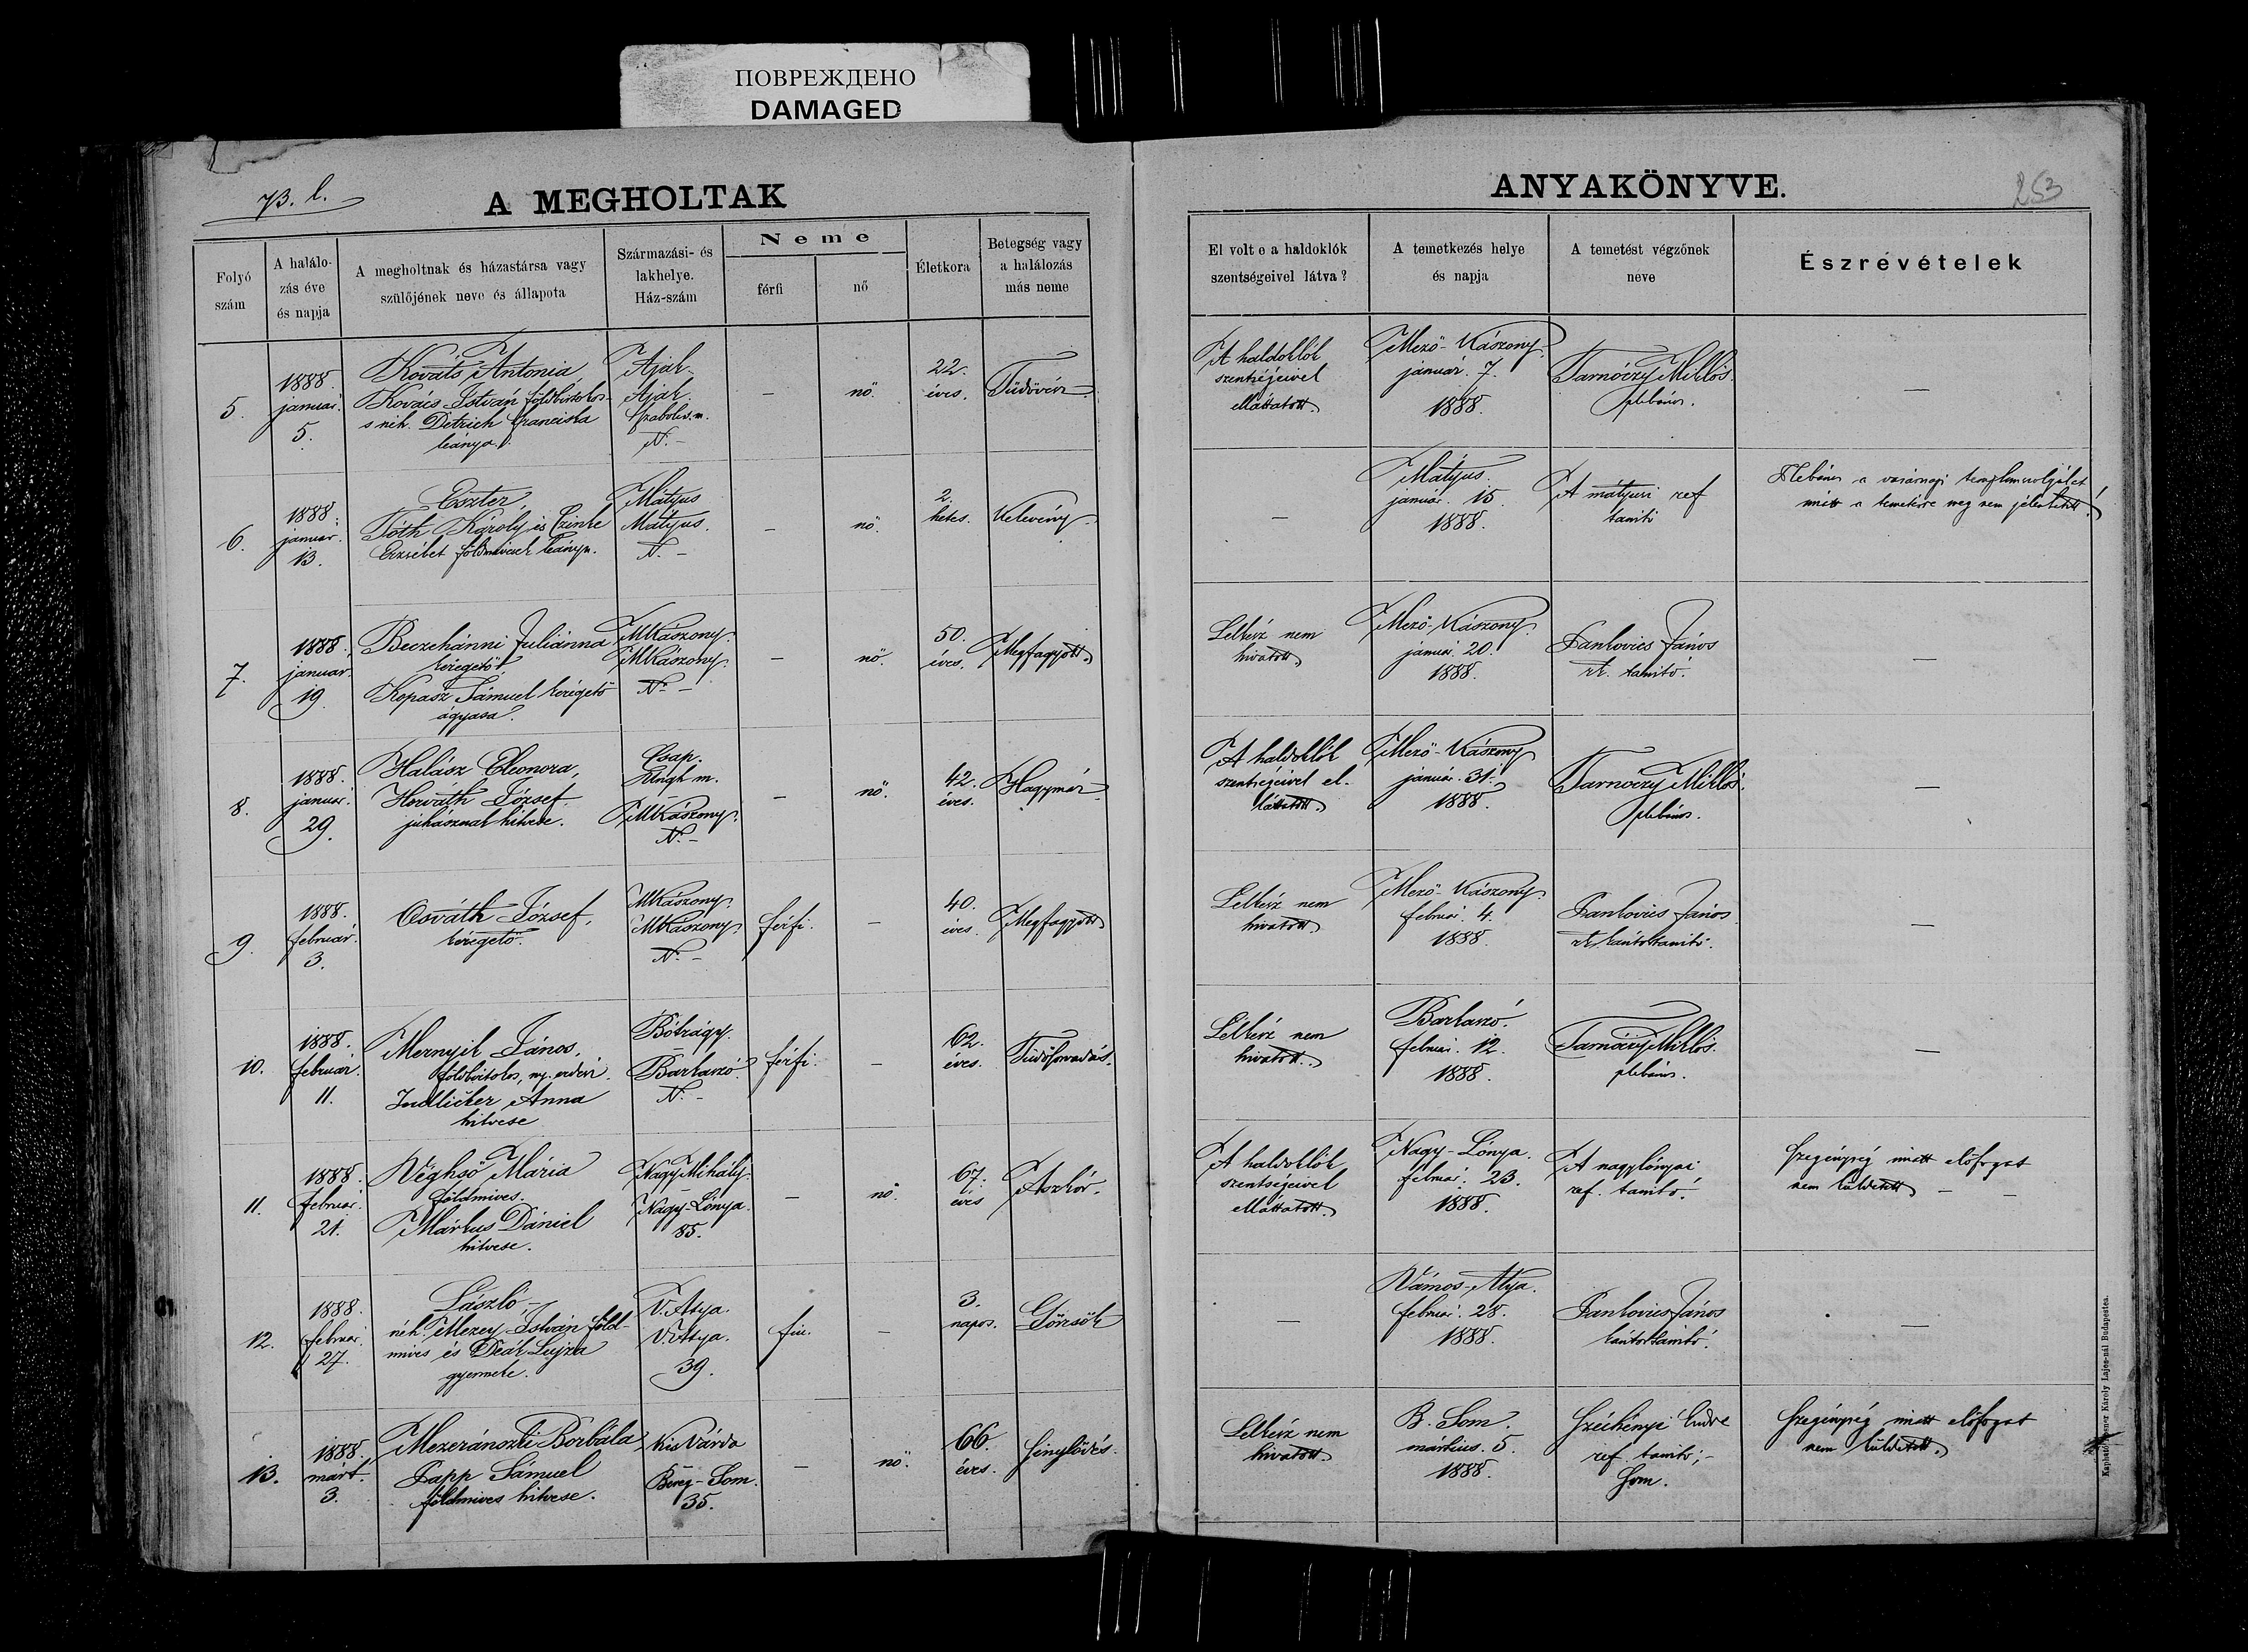 ПОВРЕЖДЕНО
DAMAGED
73. l.
A MEGHOLTAK
ANYAKÖNYVE.
253
Folyó szám
A halálo-
zás éve
és napja
A megholtnak és házastársa vagy
szülőjének neve és állapota
Származási- és
lakhelye.
Ház-szám
Neme
férfi
nő
Életkora
Betegség vagy
a halálozás
más neme
El volt e a haldoklók
szentségeivel látva?
A temetkezés helye
és napja
A temetést végzőnek
neve
Észrevételek
5.
1888.
január.
5.
Kováts Antonia
Kovács István földbirtokos
s néh. Detrich Franciska
leánya.
Ajak.
Ajak.
Szabolcs m.
N. -
-
nő.
22.
éves.
Tüdővész
A haldoklók
szentségeivel
elláttatott.
Mező-Kászony.
január. 7.
1888.
Tarnóczy Miklós
plébános.
-
6.
1888.
január.
13.
Eszter,
Tóth Károly és Czinke
Erzsébet földmivesek leánya.
Mátyus
Mátyus.
N. -
-
nő.
2.
hetes.
Kelevény.
-
Mátyus.
január. 15.
1888.
A mátyusi ref
tanító
Plébános a vasárnapi templomszolgálat
miatt a temetésre meg nem jelenhetett!
7.
1888.
január.
19.
Beczehánni Juliánna
kéregető
Kopasz Sámuel kéregető
ágyasa.
MKászony.
MKászony.
N. -
-
nő.
50.
éves.
Megfagyott.
Lelkész nem
hivatott.
Mező-Kászony.
január. 20.
1888.
Pankovics János
rk. tanító.
-
8.
1888.
január.
29.
Halász Eleonora,
Horváth József
juhásznak hitvese.
Csap.
Ungh m.
-
MKászony.
N. -
-
nő.
42.
éves.
Hagymáz
A haldoklók
szentségeivel el-
láttatott.
Mező-Kászony
január. 31.
1888.
Tarnóczy Miklós.
plébános.
-
9.
1888.
február.
3.
Osváth József,
kéregető.
MKászony.
MKászony.
N. -
férfi.
-
40.
éves.
Megfagyott
Lelkész nem
hivatott.
Mező-Kászony.
február. 4.
1888.
Pankovics János.
rk. kántortanító.
-
10.
1888.
február.
11.
Mernyik János,
földbirtokos, ny. erdész.
Jedlicker Anna
hitvese
Bótrágy.
Barkaszó.
N. -
férfi.
-
62.
éves.
Tüdősorvadás.
Lelkész nem
hivatott.
Barkaszó.
február. 12.
1888.
Tarnóczy Miklós.
plébános.
-
11.
1888.
február.
21.
Véghső Mária
földmives.
Márkus Dániel
hitvese.
Nagy Mihály.
-
Nagy-Lónya.
85.
-
nő.
67.
éves
Aszkór.
A haldoklók
szentségeivel
elláttatott.
Nagy-Lónya.
február. 23.
1888.
A nagylónyai
ref. tanító.
Szegénység miatt előfogat
nem küldetett
12.
1888.
február.
27.
László,
néh. Mezey István föld-
mives és Deák Lujza
gyermeke.
V. Atya.
V. Atya.
39.
fiu.
-
3.
napos.
Görcsök
-
Vámos-Atya.
február. 28.
1888.
Pankovics János
kántortanító.
-
13.
1888.
márt.
3.
Mezeránszki Borbála
Papp Sámuel
földmives hitvese.
Kis Várda
-
Bereg-Som.
35.
-
nő.
66.
éves.
Senylődés.
Lelkész nem
hivatott.
B. Som.
március. 5.
1888.
Széchényi Endre
ref. tanító; -
Som.
Szegénység miatt előfogat
nem küldetett.
Károly Lajos-nál Budapesten.